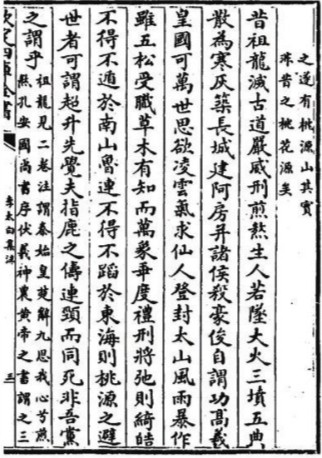 之遂有桃源山其實
非昔之桃花源矣
昔祖龍滅古道嚴威刑煎熬生人若墜大火三墳五典
散為寒灰築長城建阿房并諸侯殺豪俊自謂功高羲
皇國可萬世思欲凌雲氣求仙人登封太山風雨暴作
雖五松受職草木有知而萬象乖度禮刑將弛則綺皓
不得不遁於南山魯連不得不蹈於東海則桃源之避
世者可謂超升先覺夫指鹿之儔連頸而同死非吾黨
之謂乎
祖龍見二卷注謂秦始皇楚辭九思我心兮煎
熬孔安國尚書序伏羲神農黄帝之書謂之三
欽定四庫全書
李太白集注
三